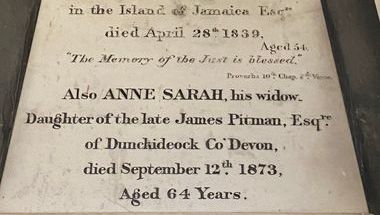 in the Island of Jamaica Esqre
died April 28th 1839,
Aged 54.
"The Memory of the Just is blessed."
Proverbs 10th Chap. 7th Verse.
Also ANNE SARAH, his widow.
Daughter of the late James Pitman, Esqre.
of Dunchideock Co Devon,
died September 12th. 1873,
Aged 64 Years.